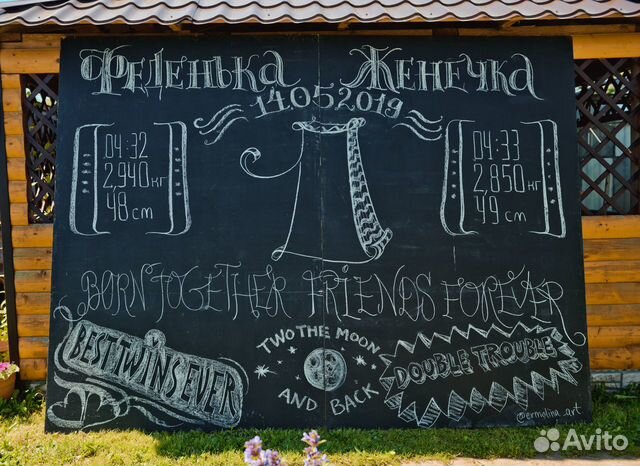 Феденька Женечка
14.05.2019
04:32
2,940 кг
48 cm
04:33
2,850 кг
49 cm
BORN TOGETHER FRIENDS FOREVER
BEST TWINS EVER
TWO THE MOON
AND BACK
DOUBLE TROUBLE
@ermolina_art
Avito